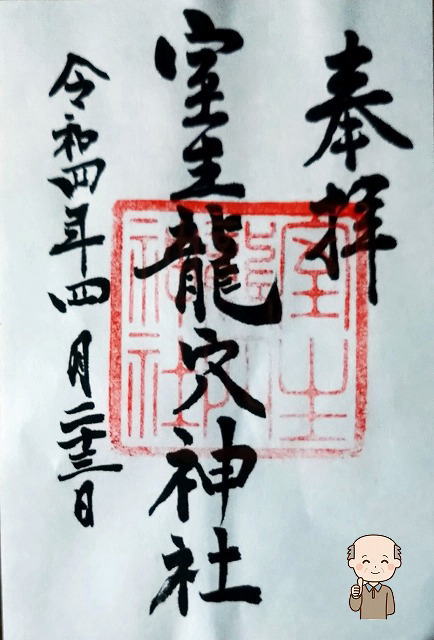 奉拝
室生龍穴神社
令和四年四月二十三日
室生
龍穴
神社